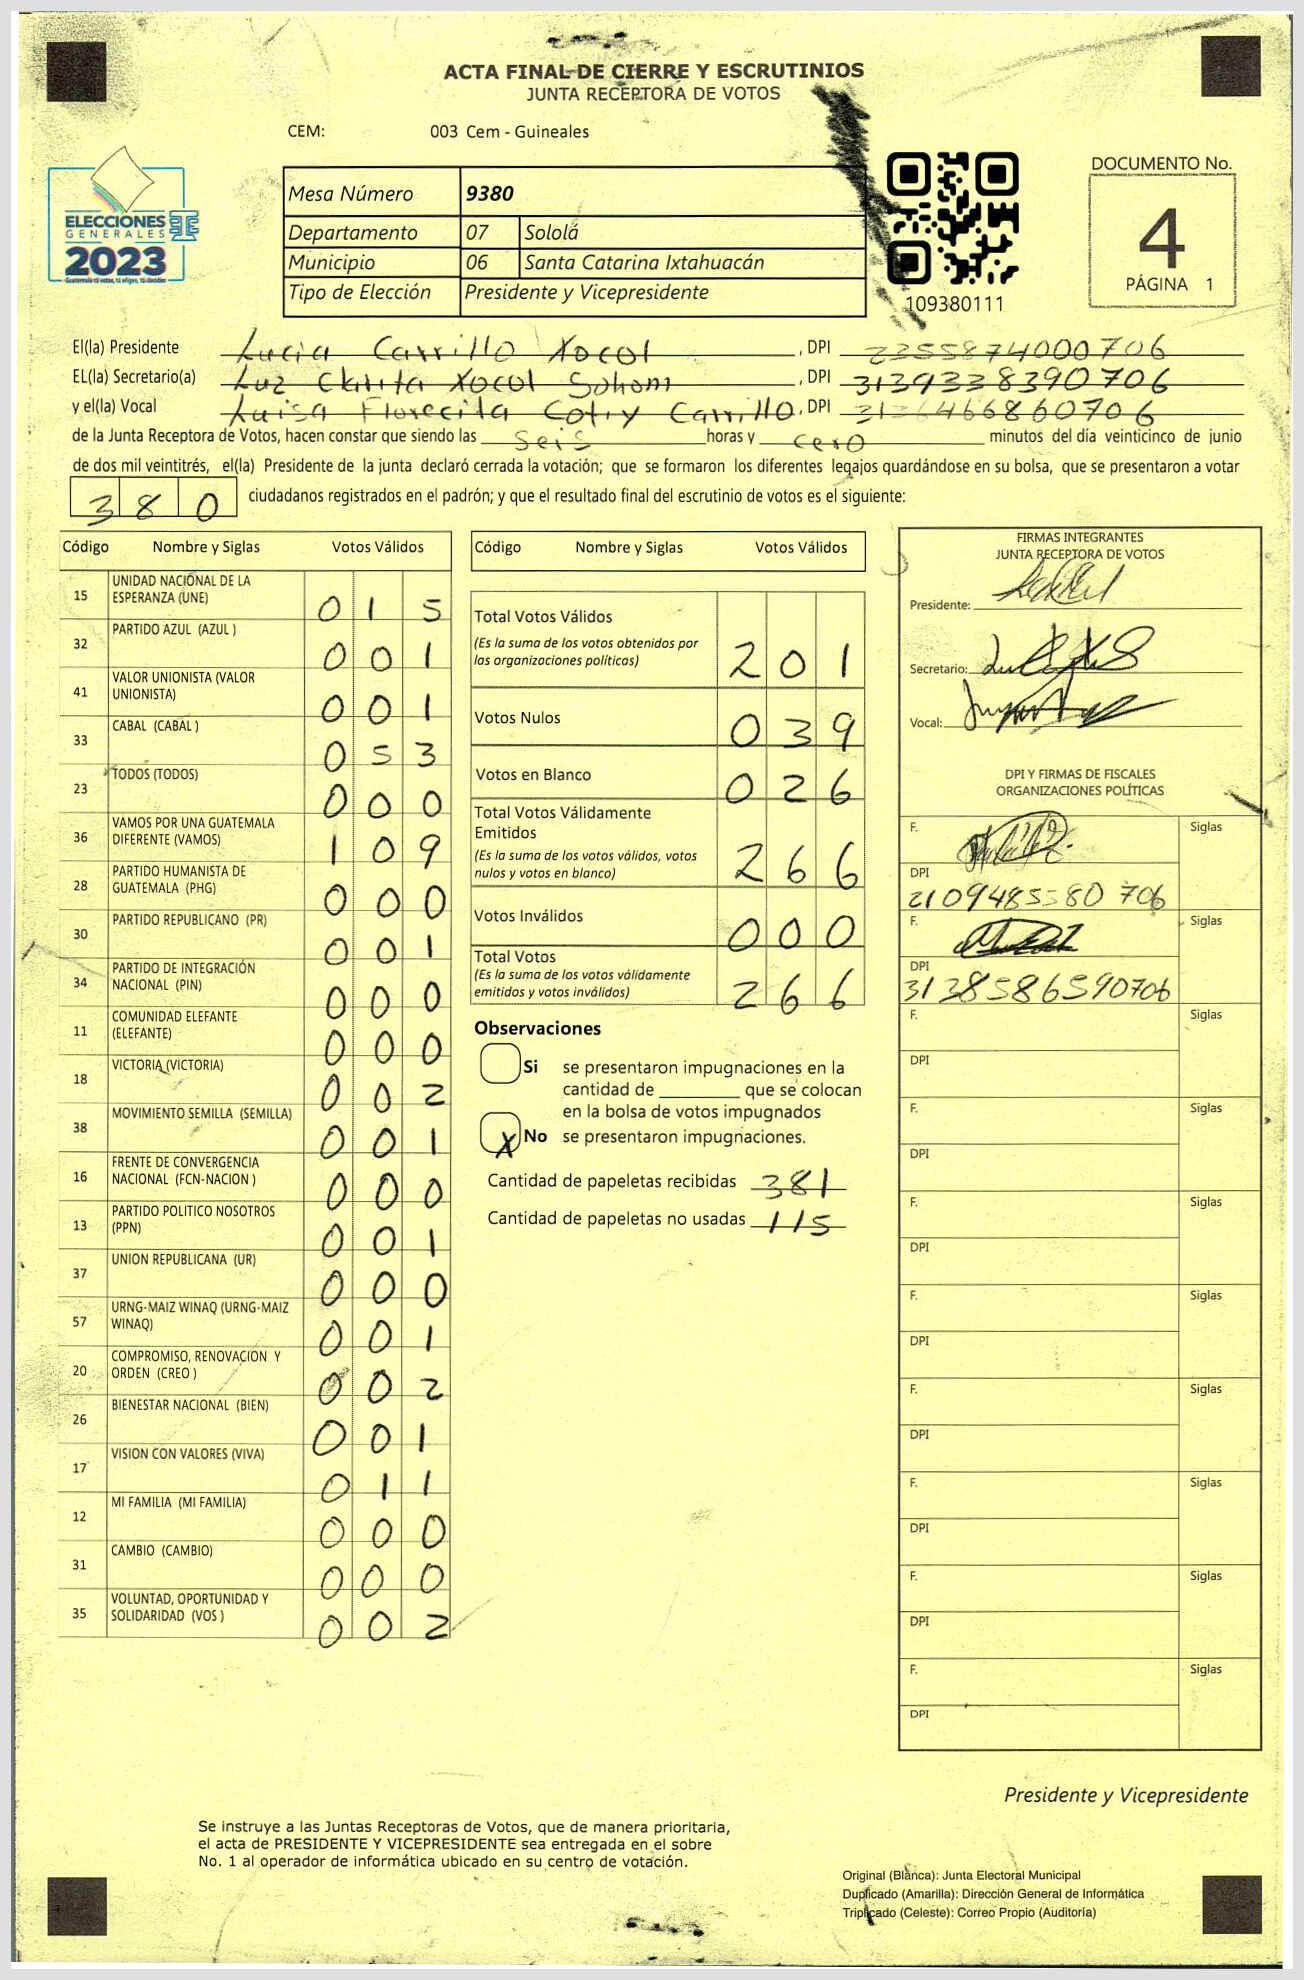 ACTA FINAL DE CIERRE Y ESCRUTINIOS
JUNTA RECEPTORA DE VOTOS
CEM: 003 Cem - Guineales
ELECCIONES
GENERALES
2023
Mesa Número 9380
Departamento 07 Sololá
Municipio 06 Santa Catarina Ixtahuacán
Tipo de Elección Presidente y Vicepresidente
109380111
DOCUMENTO No.
4
PÁGINA 1
El(la) Presidente Lucia Carrillo Xocol , DPI 2355874000706
EL(la) Secretario(a) Luz Clarita Xocol Sohom , DPI 3139338390706
y el(la) Vocal Luisa Florecita Cotiy Carrillo , DPI 3136466860706
de la Junta Receptora de Votos, hacen constar que siendo las seis horas y cero minutos del día veinticinco de junio
de dos mil veintitrés, el(la) Presidente de la junta declaró cerrada la votación; que se formaron los diferentes legajos guardándose en su bolsa, que se presentaron a votar
380 ciudadanos registrados en el padrón; y que el resultado final del escrutinio de votos es el siguiente:
Código Nombre y Siglas Votos Válidos
15 UNIDAD NACIONAL DE LA ESPERANZA (UNE) 015
32 PARTIDO AZUL (AZUL ) 001
41 VALOR UNIONISTA (VALOR UNIONISTA) 001
33 CABAL (CABAL ) 053
23 TODOS (TODOS) 000
36 VAMOS POR UNA GUATEMALA DIFERENTE (VAMOS) 109
28 PARTIDO HUMANISTA DE GUATEMALA (PHG) 000
30 PARTIDO REPUBLICANO (PR) 001
34 PARTIDO DE INTEGRACIÓN NACIONAL (PIN) 000
11 COMUNIDAD ELEFANTE (ELEFANTE) 000
18 VICTORIA (VICTORIA) 002
38 MOVIMIENTO SEMILLA (SEMILLA) 001
16 FRENTE DE CONVERGENCIA NACIONAL (FCN-NACION ) 000
13 PARTIDO POLITICO NOSOTROS (PPN) 001
37 UNION REPUBLICANA (UR) 000
57 URNG-MAIZ WINAQ (URNG-MAIZ WINAQ) 001
20 COMPROMISO, RENOVACION Y ORDEN (CREO ) 002
26 BIENESTAR NACIONAL (BIEN) 001
17 VISION CON VALORES (VIVA) 011
12 MI FAMILIA (MI FAMILIA) 000
31 CAMBIO (CAMBIO) 000
35 VOLUNTAD, OPORTUNIDAD Y SOLIDARIDAD (VOS ) 002
Código Nombre y Siglas Votos Válidos
Total Votos Válidos 201
(Es la suma de los votos obtenidos por
las organizaciones políticas)
Votos Nulos 039
Votos en Blanco 026
Total Votos Válidamente
Emitidos 266
(Es la suma de los votos válidos, votos
nulos y votos en blanco)
Votos Inválidos 000
Total Votos 266
(Es la suma de los votos válidamente
emitidos y votos inválidos)
Observaciones
Si se presentaron impugnaciones en la
cantidad de ________ que se colocan
en la bolsa de votos impugnados
X No se presentaron impugnaciones.
Cantidad de papeletas recibidas 381
Cantidad de papeletas no usadas 115
FIRMAS INTEGRANTES
JUNTA RECEPTORA DE VOTOS
Presidente:
Secretario:
Vocal:
DPI Y FIRMAS DE FISCALES
ORGANIZACIONES POLÍTICAS
F. Siglas
DPI
2109485580 706
F. Siglas
DPI
3138586590706
F. Siglas
DPI
F. Siglas
DPI
F. Siglas
DPI
F. Siglas
DPI
F. Siglas
DPI
F. Siglas
DPI
F. Siglas
DPI
F. Siglas
DPI
Presidente y Vicepresidente
Se instruye a las Juntas Receptoras de Votos, que de manera prioritaria,
el acta de PRESIDENTE Y VICEPRESIDENTE sea entregada en el sobre
No. 1 al operador de informática ubicado en su centro de votación.
Original (Blanca): Junta Electoral Municipal
Duplicado (Amarilla): Dirección General de Informática
Triplicado (Celeste): Correo Propio (Auditoría)